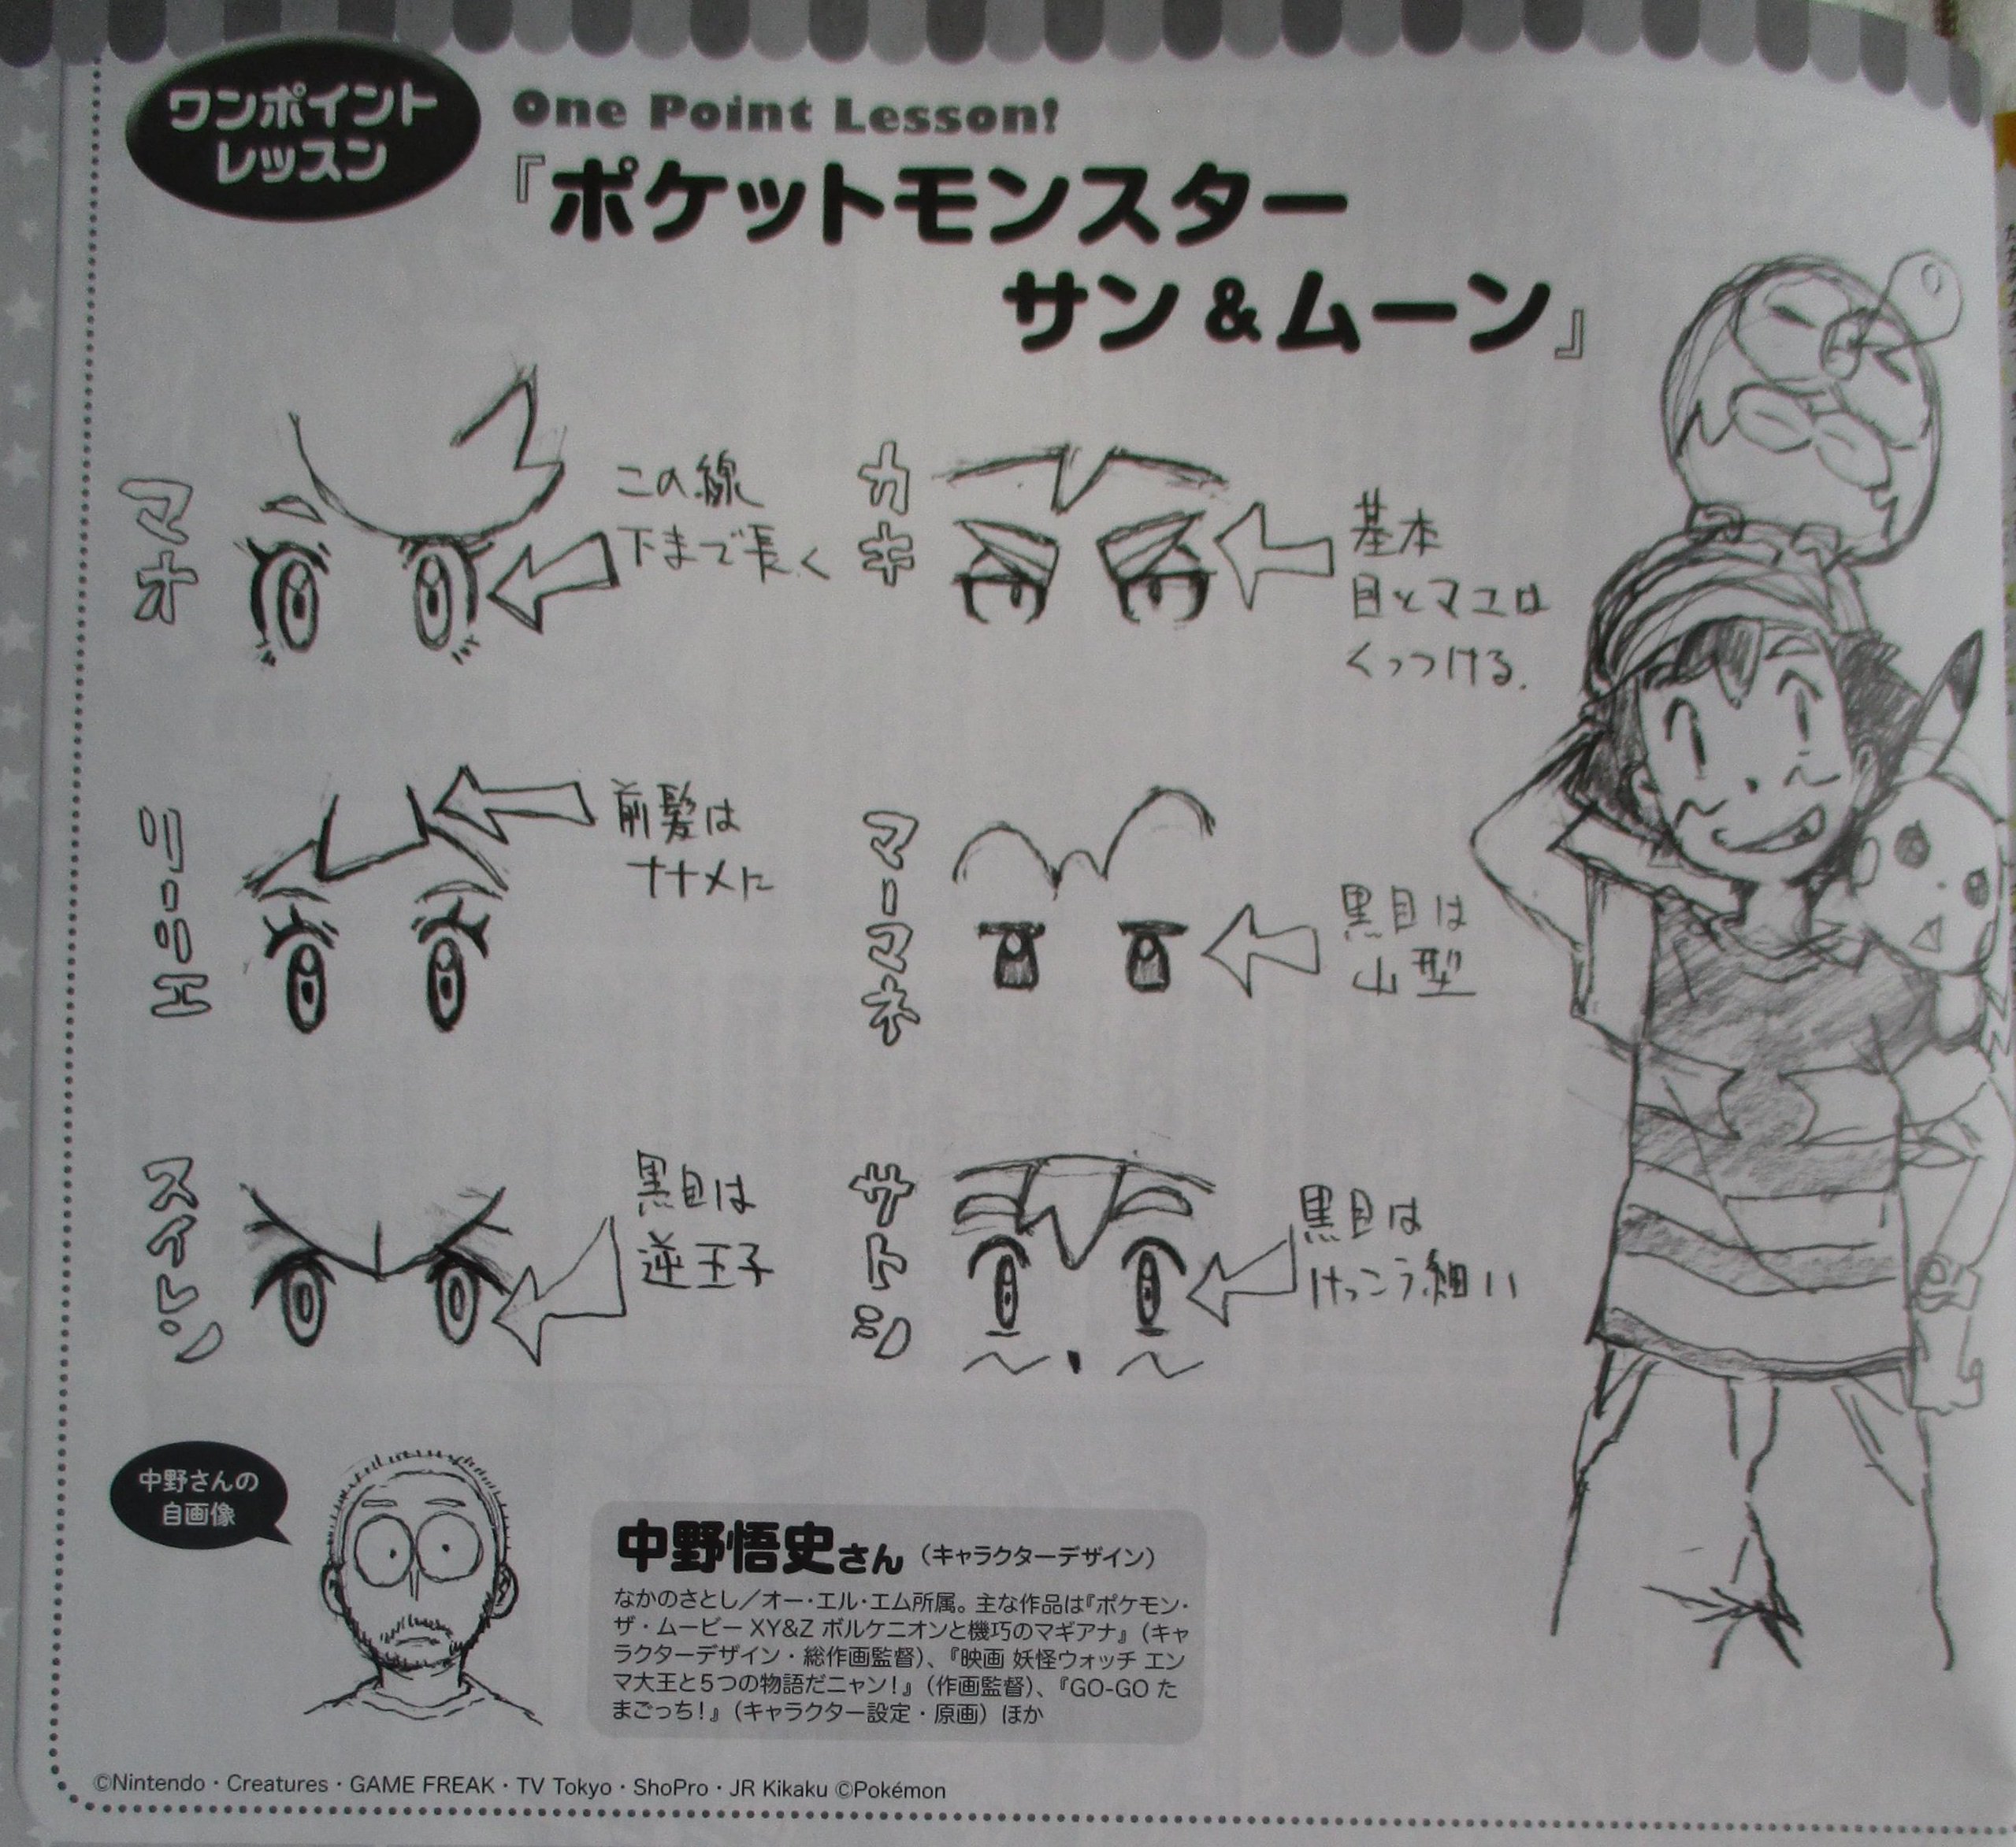 ワンポイント
レッスン
One Point Lesson!
『ポケットモンスター
サン&ムーン』
マオ
この線
下まで長く
カキ
基本
目とマユは
くっつける.
リーリエ
前髪は
ナナメに
マーマネ
黒目は
山型
スイレン
黒目は
逆玉子
サトシ
黒目は
けっこう細い
中野さんの
自画像
中野悟史さん(キャラクターデザイン)
なかのさとし/オー・エル・エム所属。主な作品は『ポケモン・
ザ・ムービー XY&Z ボルケニオンと機巧のマギアナ』(キャ
ラクターデザイン・総作画監督)、『映画 妖怪ウォッチ エン
マ大王と5つの物語だニャン!』(作画監督)、『GO-GO た
まごっち!』(キャラクター設定・原画)ほか
©Nintendo・Creatures・GAME FREAK・TV Tokyo・ShoPro・JR Kikaku ©Pokémon